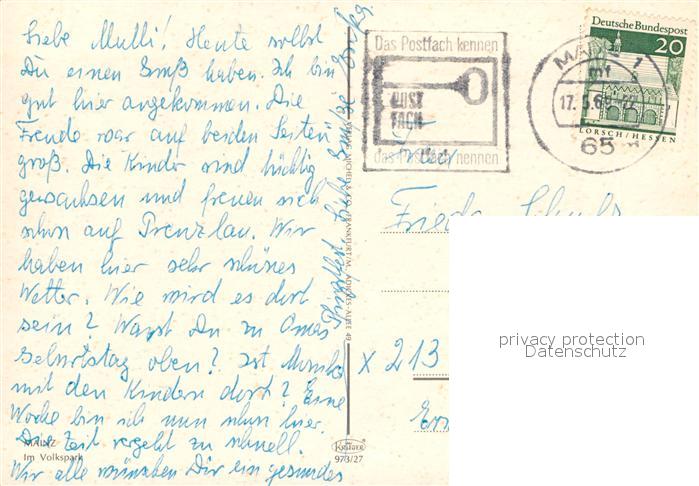 Liebe Mulli! Heute sollst
Du einen Gruß haben. Ich bin
gut hier angekommen. Die
Freude war auf beiden Seiten
groß. Die Kinder sind tüchtig
gewachsen und freuen sich
schon auf Prenzlau. Wir
haben hier sehr schönes
Wetter. Wie wird es dort
sein? Warst Du zu Omas
Geburtstag oben? Ist
mit den Kindern dort? Eine
Woche bin ich nun schon hier.
Die Zeit vergeht zu schnell.
Wir alle wünschen Dir ein gesundes
Pfingstfest. Liebe Grüße
MAINZ
Im Volkspark
Krüger
973/27
Das Postfach kennen
POST
FACH
das Postfach nennen
MAINZ 1
mf
17.5.69
65
Deutsche Bundespost
20
LORSCH/HESSEN
X 213
privacy protection
Datenschutz